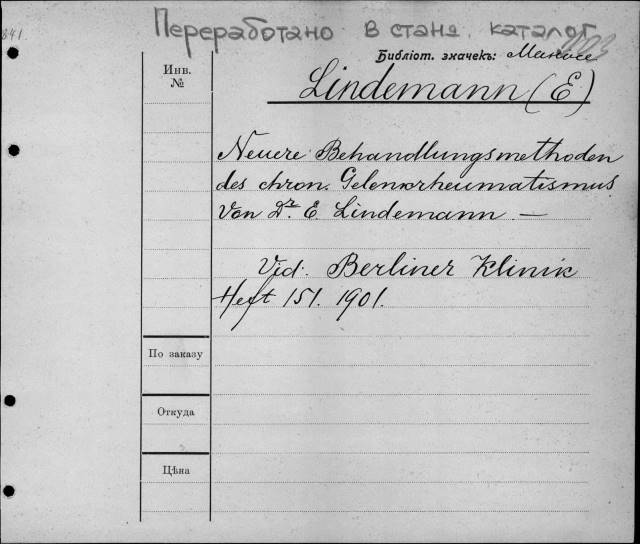 841.
Переработано в станд. каталог
203
Библіот. значекъ:
Инв.
№
Lindemann (E)
Neuere Behandlungsmethoden
des chron. Gelenkrheumatismus
Von Dr. E. Lindemann. —
Vid. Berliner Klinik
Heft 151. 1901.
По заказу
Откуда
Цѣна